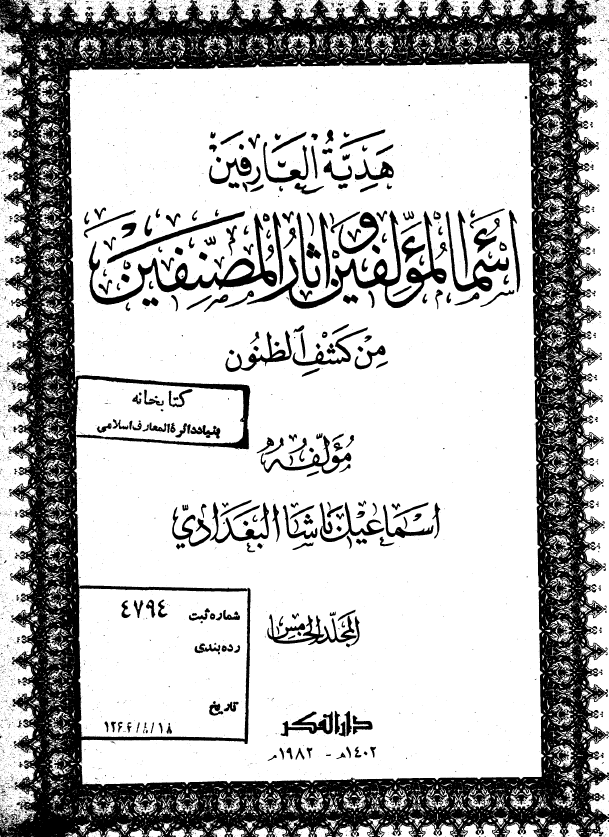 هَدِيَّةُ العَارِفِين
أسماء المؤلّفين وآثار المصنّفين
مِن كَشفِ الظنُون
كتابخانه
بنیاد دائرة المعارف اسلامی
مُؤلّفه
اسماعيل باشا البغدادي
المجلّد الخامس
شماره ثبت ٤٧٩٤
رده بندی
تاریخ
دار الفكر
١٤٠٢هـ - ١٩٨٢م